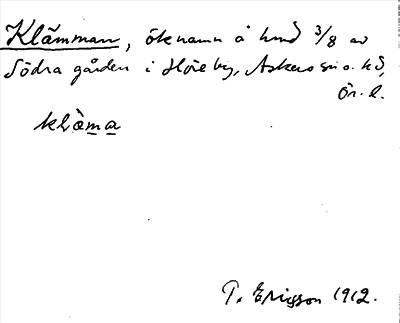 Klämman, öknamn å hmd 3/8 av
Södra gården i Höreby, Askers sn o. hd,
Ör. l.
klä̀ma
T. Ericsson 1912.